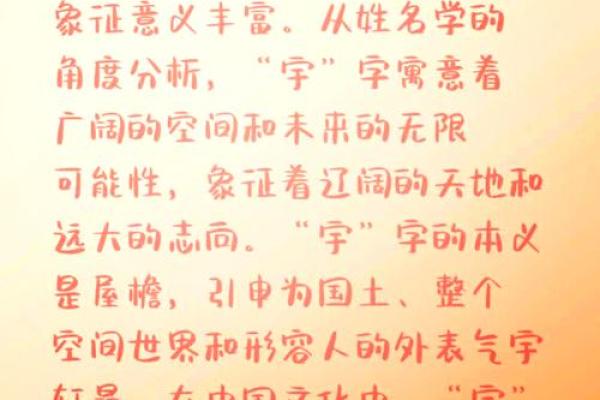 象征意义丰富。从姓名学的
角度分析，“宇”字寓意着
广阔的空间和未来的无限
可能性，象征着辽阔的天地和
远大的志向。“宇”字的本义
是屋檐，引申为国土、整个
空间世界和形容人的外表气宇
轩昂。在中国文化中，“宇”